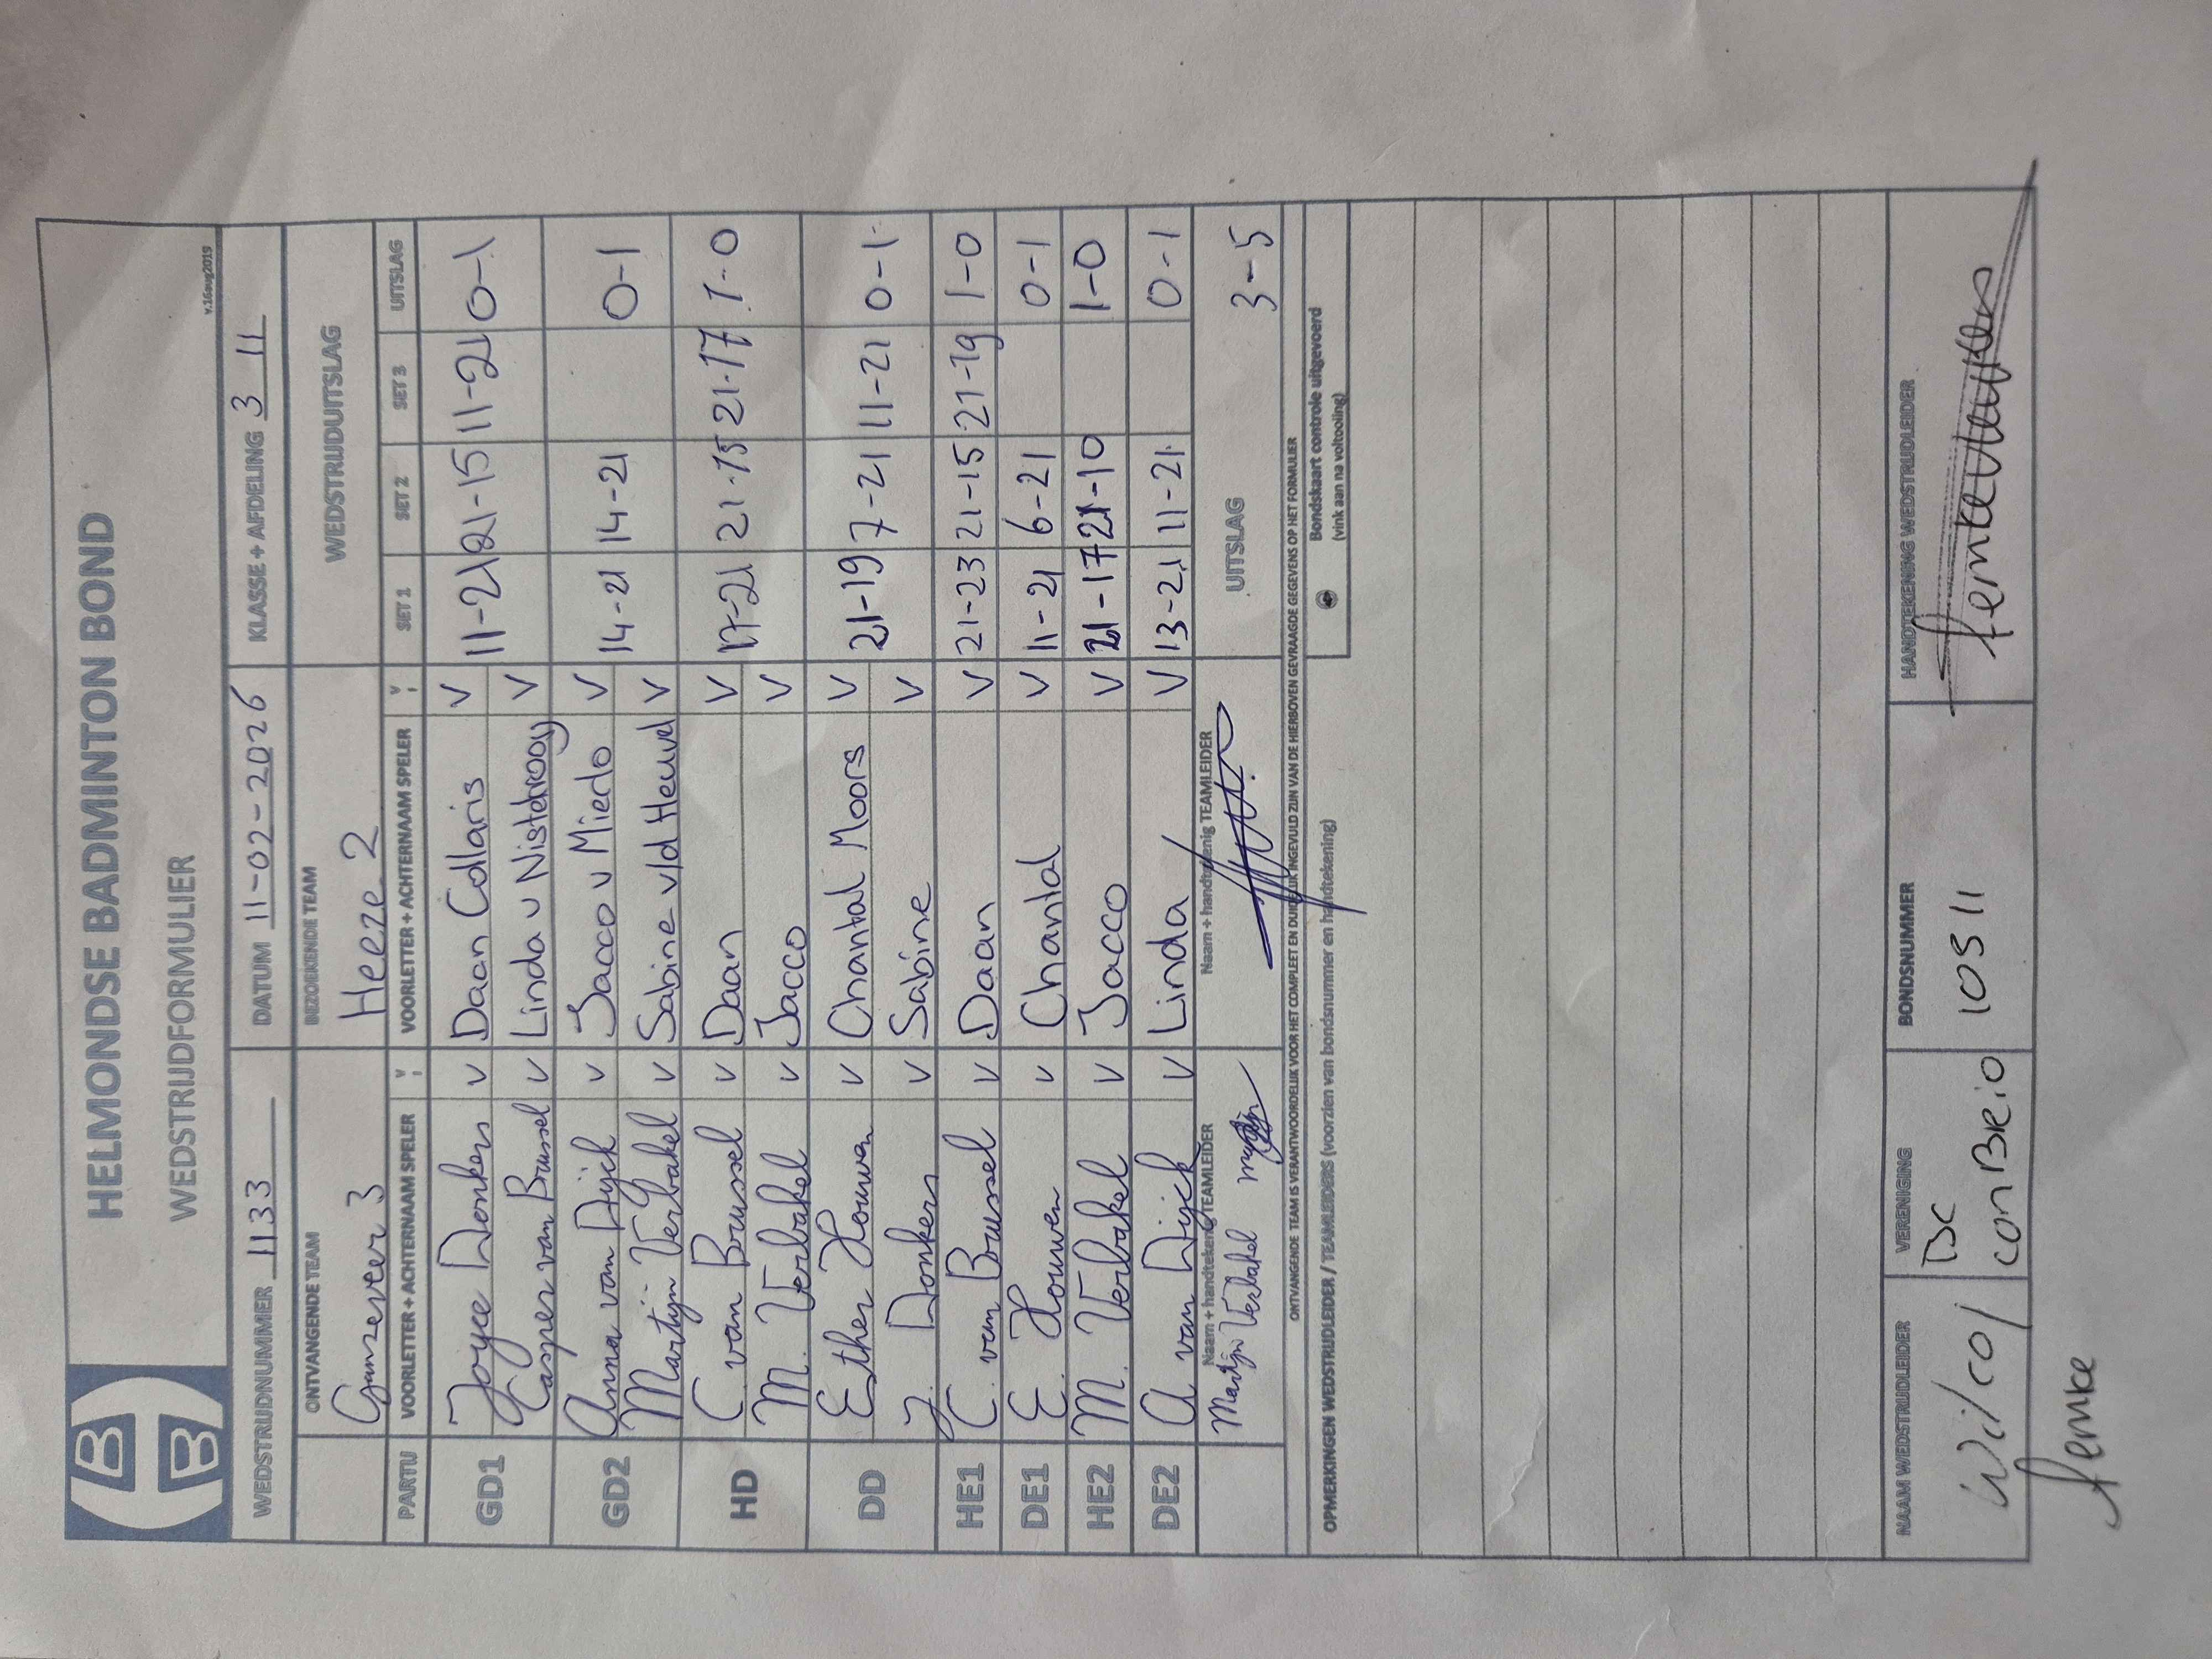 HELMONDSE BADMINTON BOND
WEDSTRIJDFORMULIER
v.16aug2019
WEDSTRIJDNUMMER 1133 DATUM 11-02-2026 KLASSE + AFDELING 3 11
ONTVANGENDE TEAM BEZOEKENDE TEAM WEDSTRIJDUITSLAG
Ganzeveer 3 Heeze 2
PARTIJ VOORLETTER + ACHTERNAAM SPELER V VOORLETTER + ACHTERNAAM SPELER V SET 1 SET 2 SET 3 UITSLAG
GD1 Joyce Donkers V Daan Collaris V 11-21 21-15 11-21 0-1
Casper van Brussel V Linda v Nistelrooy V
GD2 Anna van Dijck V Jacco v Mierlo V 14-21 14-21 0-1
Martijn Verbakel V Sabine v/d Heuvel V
HD C van Brussel V Daan V 17-21 21-15 21-17 1-0
M. Verbakel V Jacco V
DD Esther Houwen V Chantal Moors V 21-19 7-21 11-21 0-1
J. Donkers V Sabine V
HE1 C van Brussel V Daan V 21-23 21-15 21-19 1-0
DE1 E Houwen V Chantal V 11-21 6-21 0-1
HE2 M. Verbakel V Jacco V 21-17 21-10 1-0
DE2 A van Dijck V Linda V 13-21 11-21 0-1
Naam + handtekening TEAMLEIDER Naam + handtekenig TEAMLEIDER UITSLAG 3-5
Martijn Verbakel
ONTVANGENDE TEAM IS VERANTWOORDELIJK VOOR HET COMPLEET EN DUIDELIJK INGEVULD ZIJN VAN DE HIERBOVEN GEVRAAGDE GEGEVENS OP HET FORMULIER
OPMERKINGEN WEDSTRIJDLEIDER / TEAMLEIDERS (voorzien van bondsnummer en handtekening) Bondskaart controle uitgevoerd
(vink aan na voltooiing)
NAAM WEDSTRIJDLEIDER VERENIGING BONDSNUMMER HANDTEKENING WEDSTRIJDLEIDER
Wilco/ BC 10511
conBrio
Femke